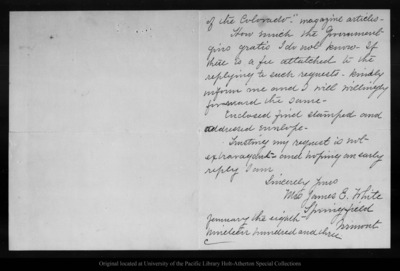 of the Colorado." magazine articles -
How much the Government
gives gratis I do not know - If
there is a fee attatched to the
replying to such requests - kindly
inform me and I will willingly
forward the same -
Enclosed find stamped and
addressed envelope -
Trusting my request is not
extravagant - and hoping an early
reply I am
Sincerely Yours
Mrs James E. White
Springfield
Vermont
January the eighth
nineteen hundred and three
Original located at University of the Pacific Library Holt-Atherton Special Collections